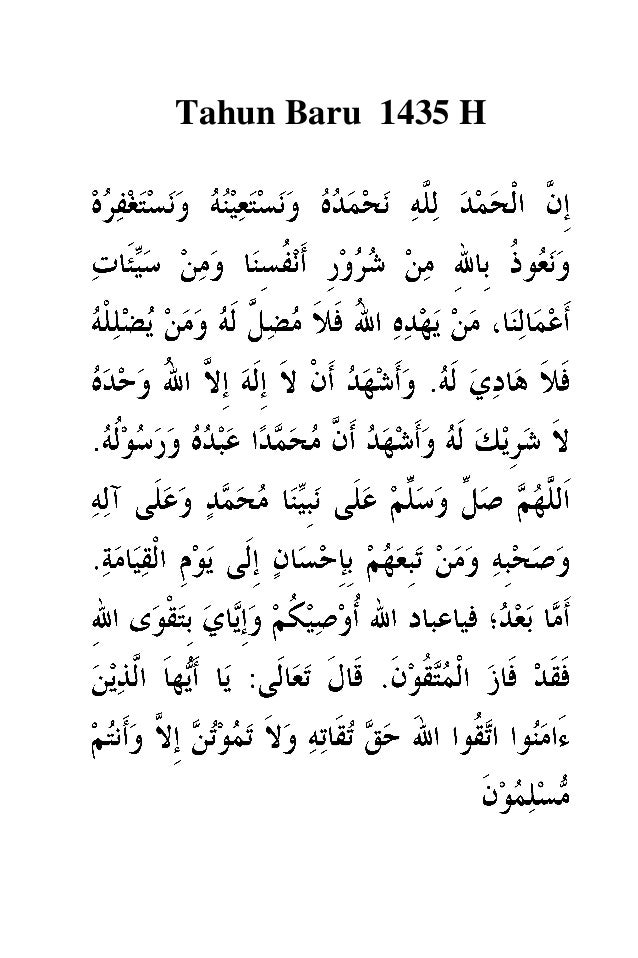 Tahun Baru 1435 H
إِنَّ الْحَمْدَ لِلَّهِ نَحْمَدُهُ وَنَسْتَعِيْنُهُ وَنَسْتَغْفِرُهْ
وَنَعُوذُ بِاللهِ مِنْ شُرُوْرِ أَنْفُسِنَا وَمِنْ سَيِّئَاتِ
أَعْمَالِنَا، مَنْ يَهْدِهِ اللهُ فَلاَ مُضِلَّ لَهُ وَمَنْ يُضْلِلْهُ
فَلاَ هَادِيَ لَهُ. وَأَشْهَدُ أَنْ لاَ إِلَهَ إِلاَّ اللهُ وَحْدَهُ
لاَ شَرِيْكَ لَهُ وَأَشْهَدُ أَنَّ مُحَمَّدًا عَبْدُهُ وَرَسُوْلُهُ.
اَللَّهُمَّ صَلِّ وَسَلِّمْ عَلَى نَبِيِّنَا مُحَمَّدٍ وَعَلَى آلِهِ
وَصَحْبِهِ وَمَنْ تَبِعَهُمْ بِإِحْسَانٍ إِلَى يَوْمِ الْقِيَامَةِ.
أَمَّا بَعْدُ؛ فياعباد الله أُوْصِيْكُمْ وَإِيَّايَ بِتَقْوَى اللهِ
فَقَدْ فَازَ الْمُتَّقُوْنَ. قَالَ تَعَالَى: يَا أَيُّهاَ الَّذِيْنَ
ءَامَنُوا اتَّقُوا اللهَ حَقَّ تُقَاتِهِ وَلاَ تَمُوْتُنَّ إِلاَّ وَأَنتُمْ
مُّسْلِمُوْنَ